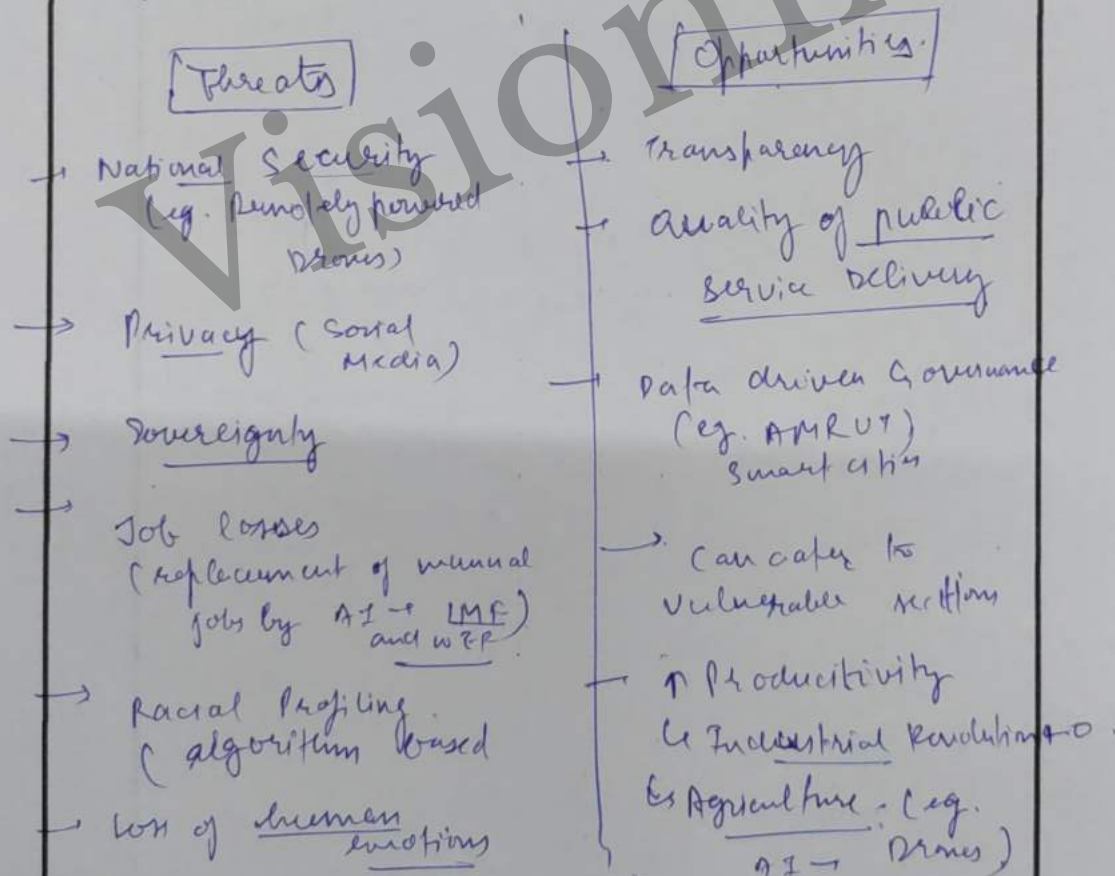 Threats
National Security
(eg. Remotely powered
Drones)
Privacy (Social
Media)
Sovereignty
Job losses
(replacement of manual
jobs by AI → IMF
and WEF)
Racial Profiling
( algorithm based
Loss of human
emotions
Opportunities.
Transparency
Quality of public
Service Delivery
Data driven Governance
(eg. AMRUT)
Smart cities
Can cater to
vulnerable sections
↑ Producitivity
↳ Industrial Revolution 4.0
↳ Agriculture. (eg.
AI → Drones)
Vision